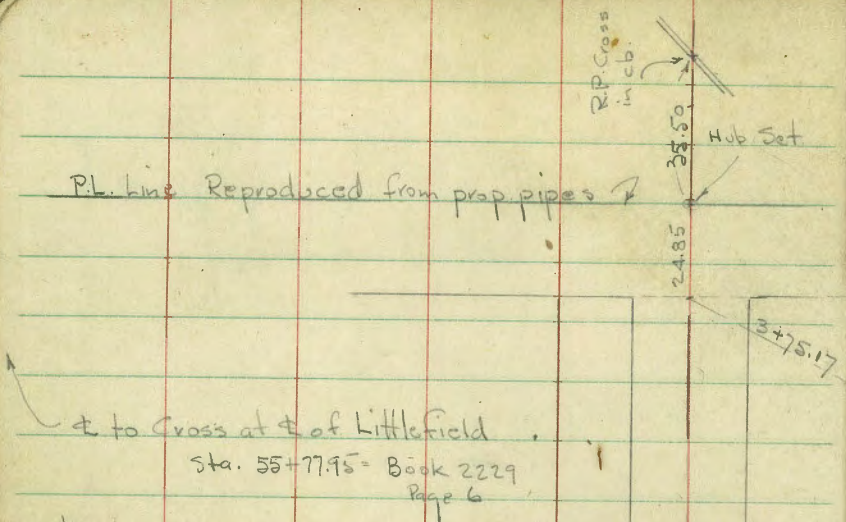 R.P. Cross
in cb.
35.50
Hub Set
P.L. Line Reproduced from prop. pipes
24.85
3+75.17
℄ to Cross at ℄ of Littlefield
Sta. 55+77.95 = Book 2229
Page 6